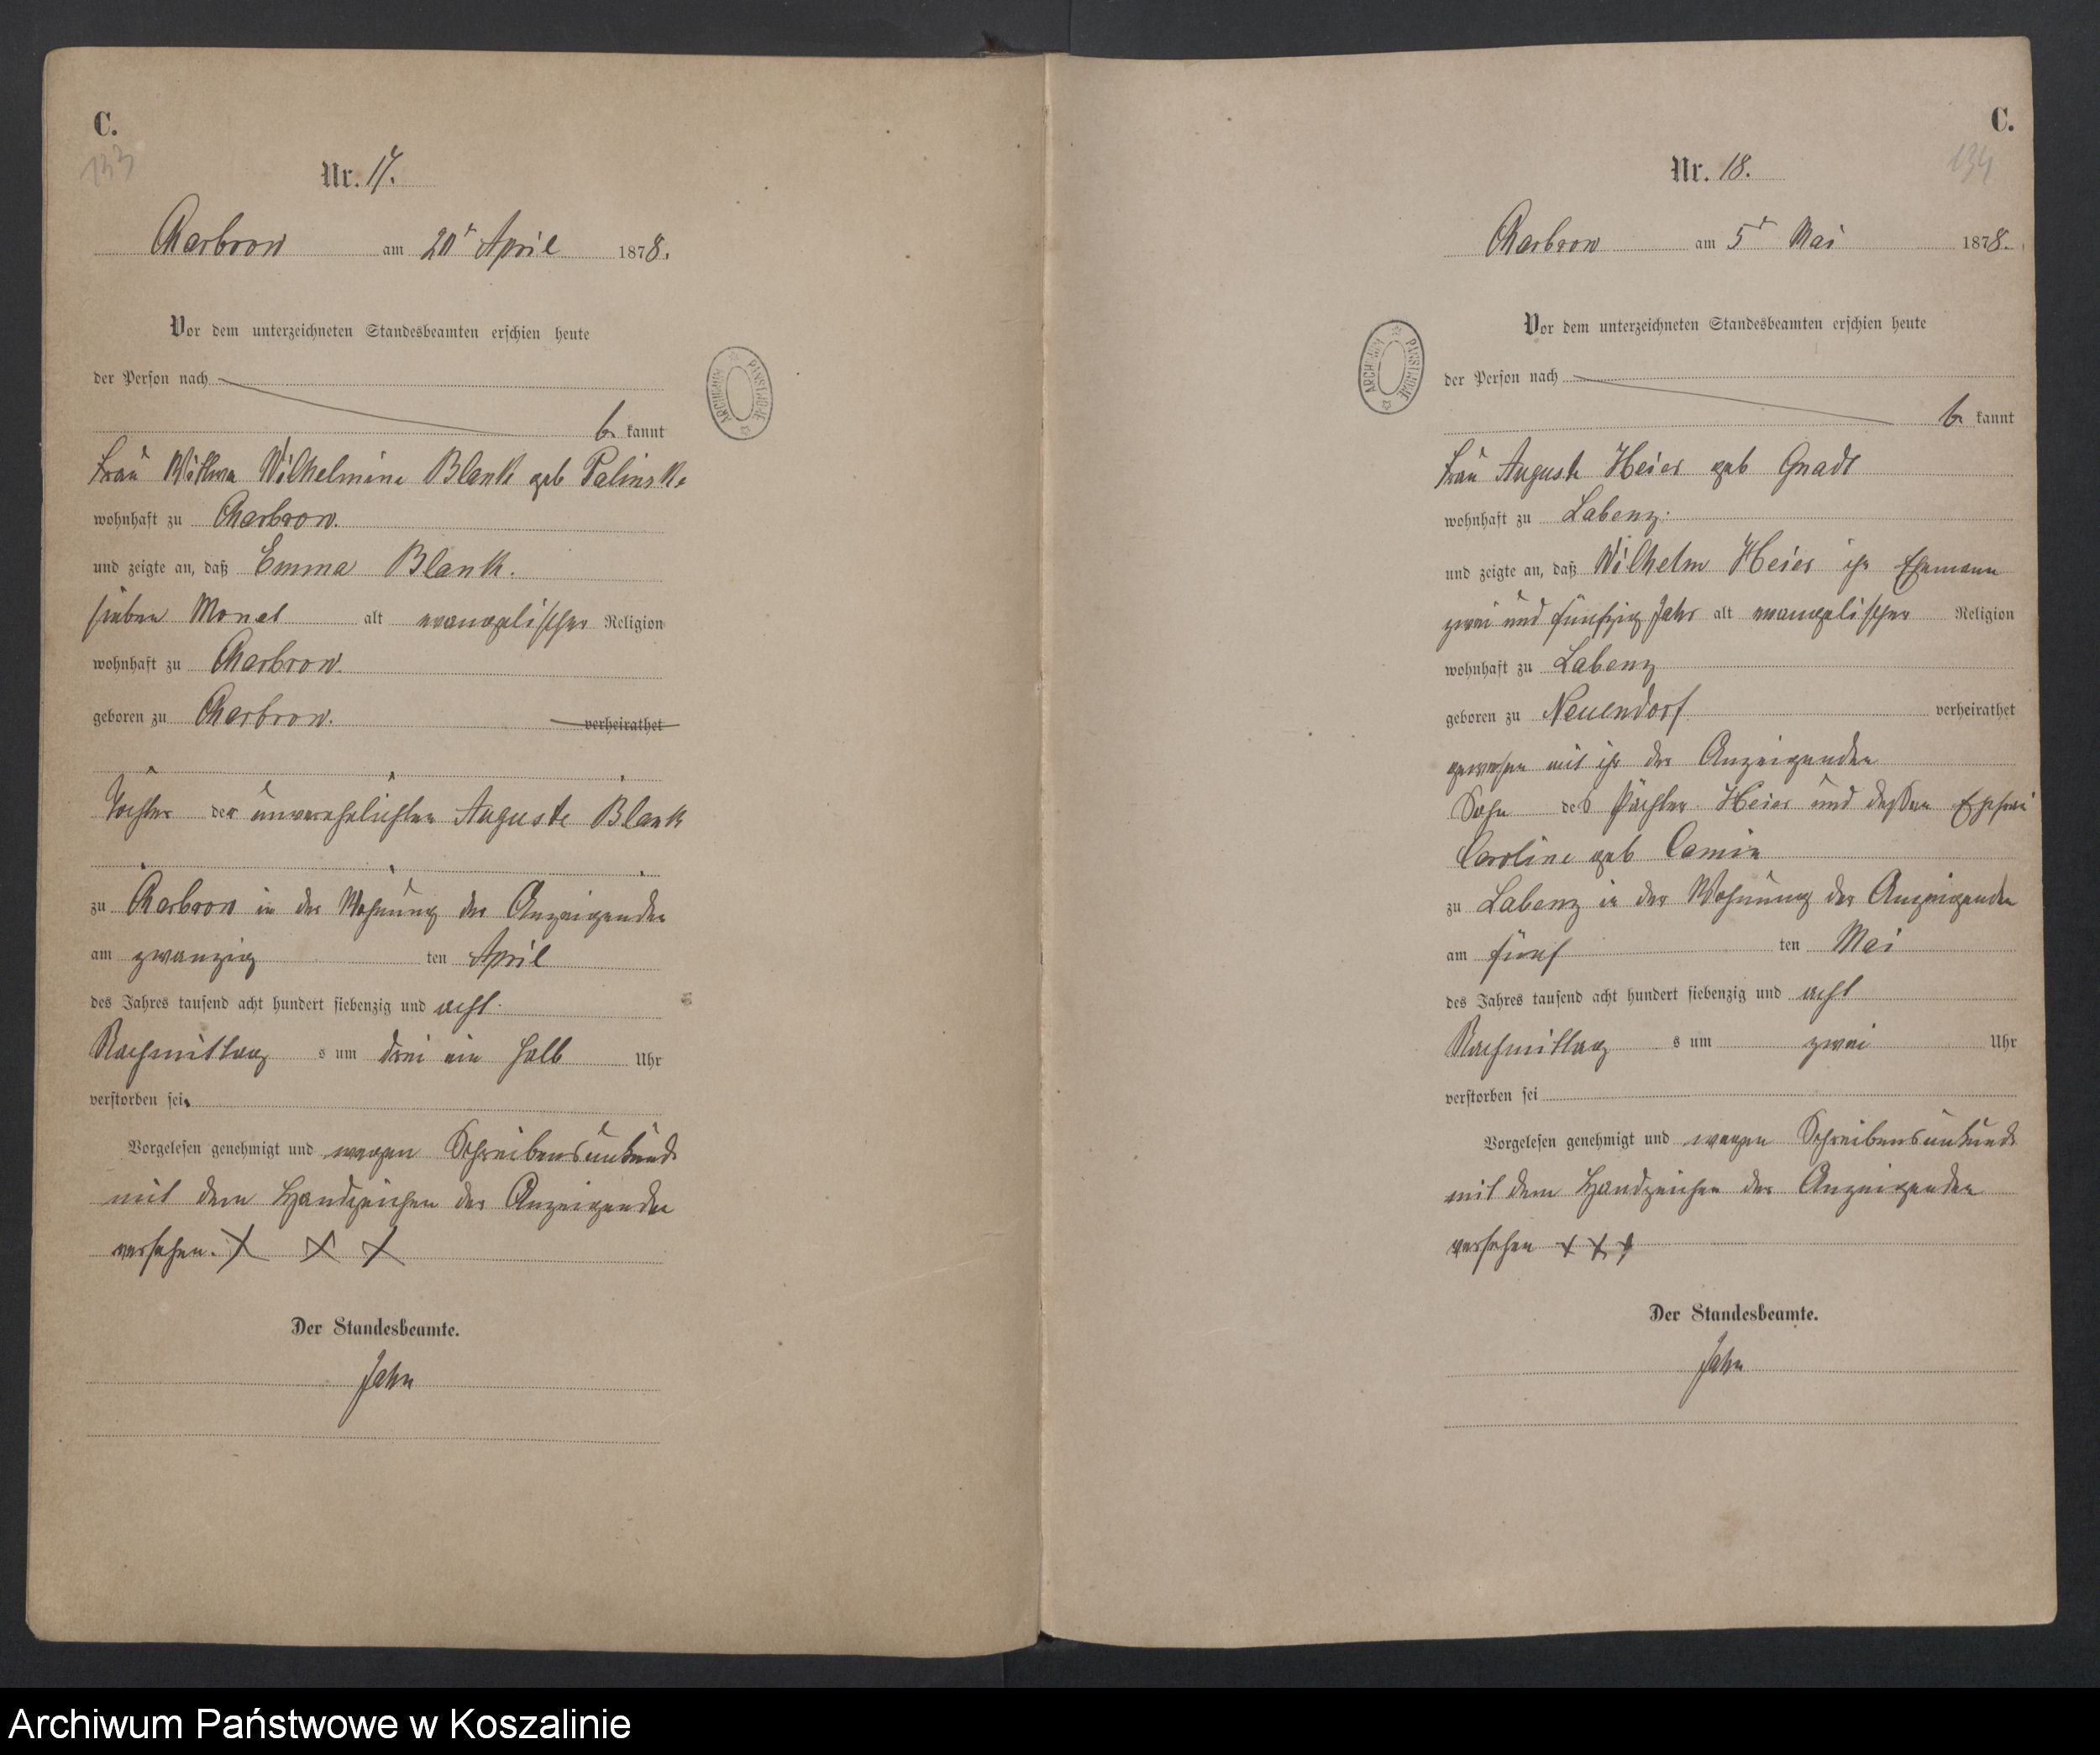 C.
133
Nr. 17.
Charbrow am 20t April 1878.
Vor dem unterzeichneten Standesbeamten erschien heute
der Person nach
be kannt
Frau Wittwe Wilhelmine Blank geb Palinske
wohnhaft zu Charbrow.
und zeigte an, daß Emma Blank.
sieben Monat alt evangelischer Religion
wohnhaft zu Charbrow.
geboren zu Charbrow. verheirathet
Tochter der unverehelichten Auguste Blank
zu Charbrow in der Wohnung der Anzeigenden
am zwanzig ten April
des Jahres tausend acht hundert siebenzig und acht.
Nachmittag s um drei ein halb Uhr
verstorben sei.
Vorgelesen genehmigt und wegen Schreibensunkunde
mit dem Handzeichen der Anzeigenden
versehen. X X X
Der Standesbeamte.
Jahn
C.
134
Nr. 18.
Charbrow am 5t Mai 1878.
Vor dem unterzeichneten Standesbeamten erschien heute
der Person nach
be kannt
Frau Auguste Heier geb Gnadt
wohnhaft zu Labenz.
und zeigte an, daß Wilhelm Heier ihr Ehemann
zwei und fünfzig Jahr alt evangelischer Religion
wohnhaft zu Labenz
geboren zu Neuendorf verheirathet
gewesen mit ihr der Anzeigenden
Sohn des Pächter Heier und dessen Ehefrau
Caroline geb Camin
zu Labenz in der Wohnung der Anzeigenden
am fünf ten Mai
des Jahres tausend acht hundert siebenzig und acht
Nachmittag s um zwei Uhr
verstorben sei
Vorgelesen genehmigt und wegen Schreibensunkunde
mit dem Handzeichen der Anzeigenden
versehen + + +
Der Standesbeamte.
Jahn
ARCHIWUM PAŃSTWOWE
ARCHIWUM PAŃSTWOWE
Archiwum Państwowe w Koszalinie